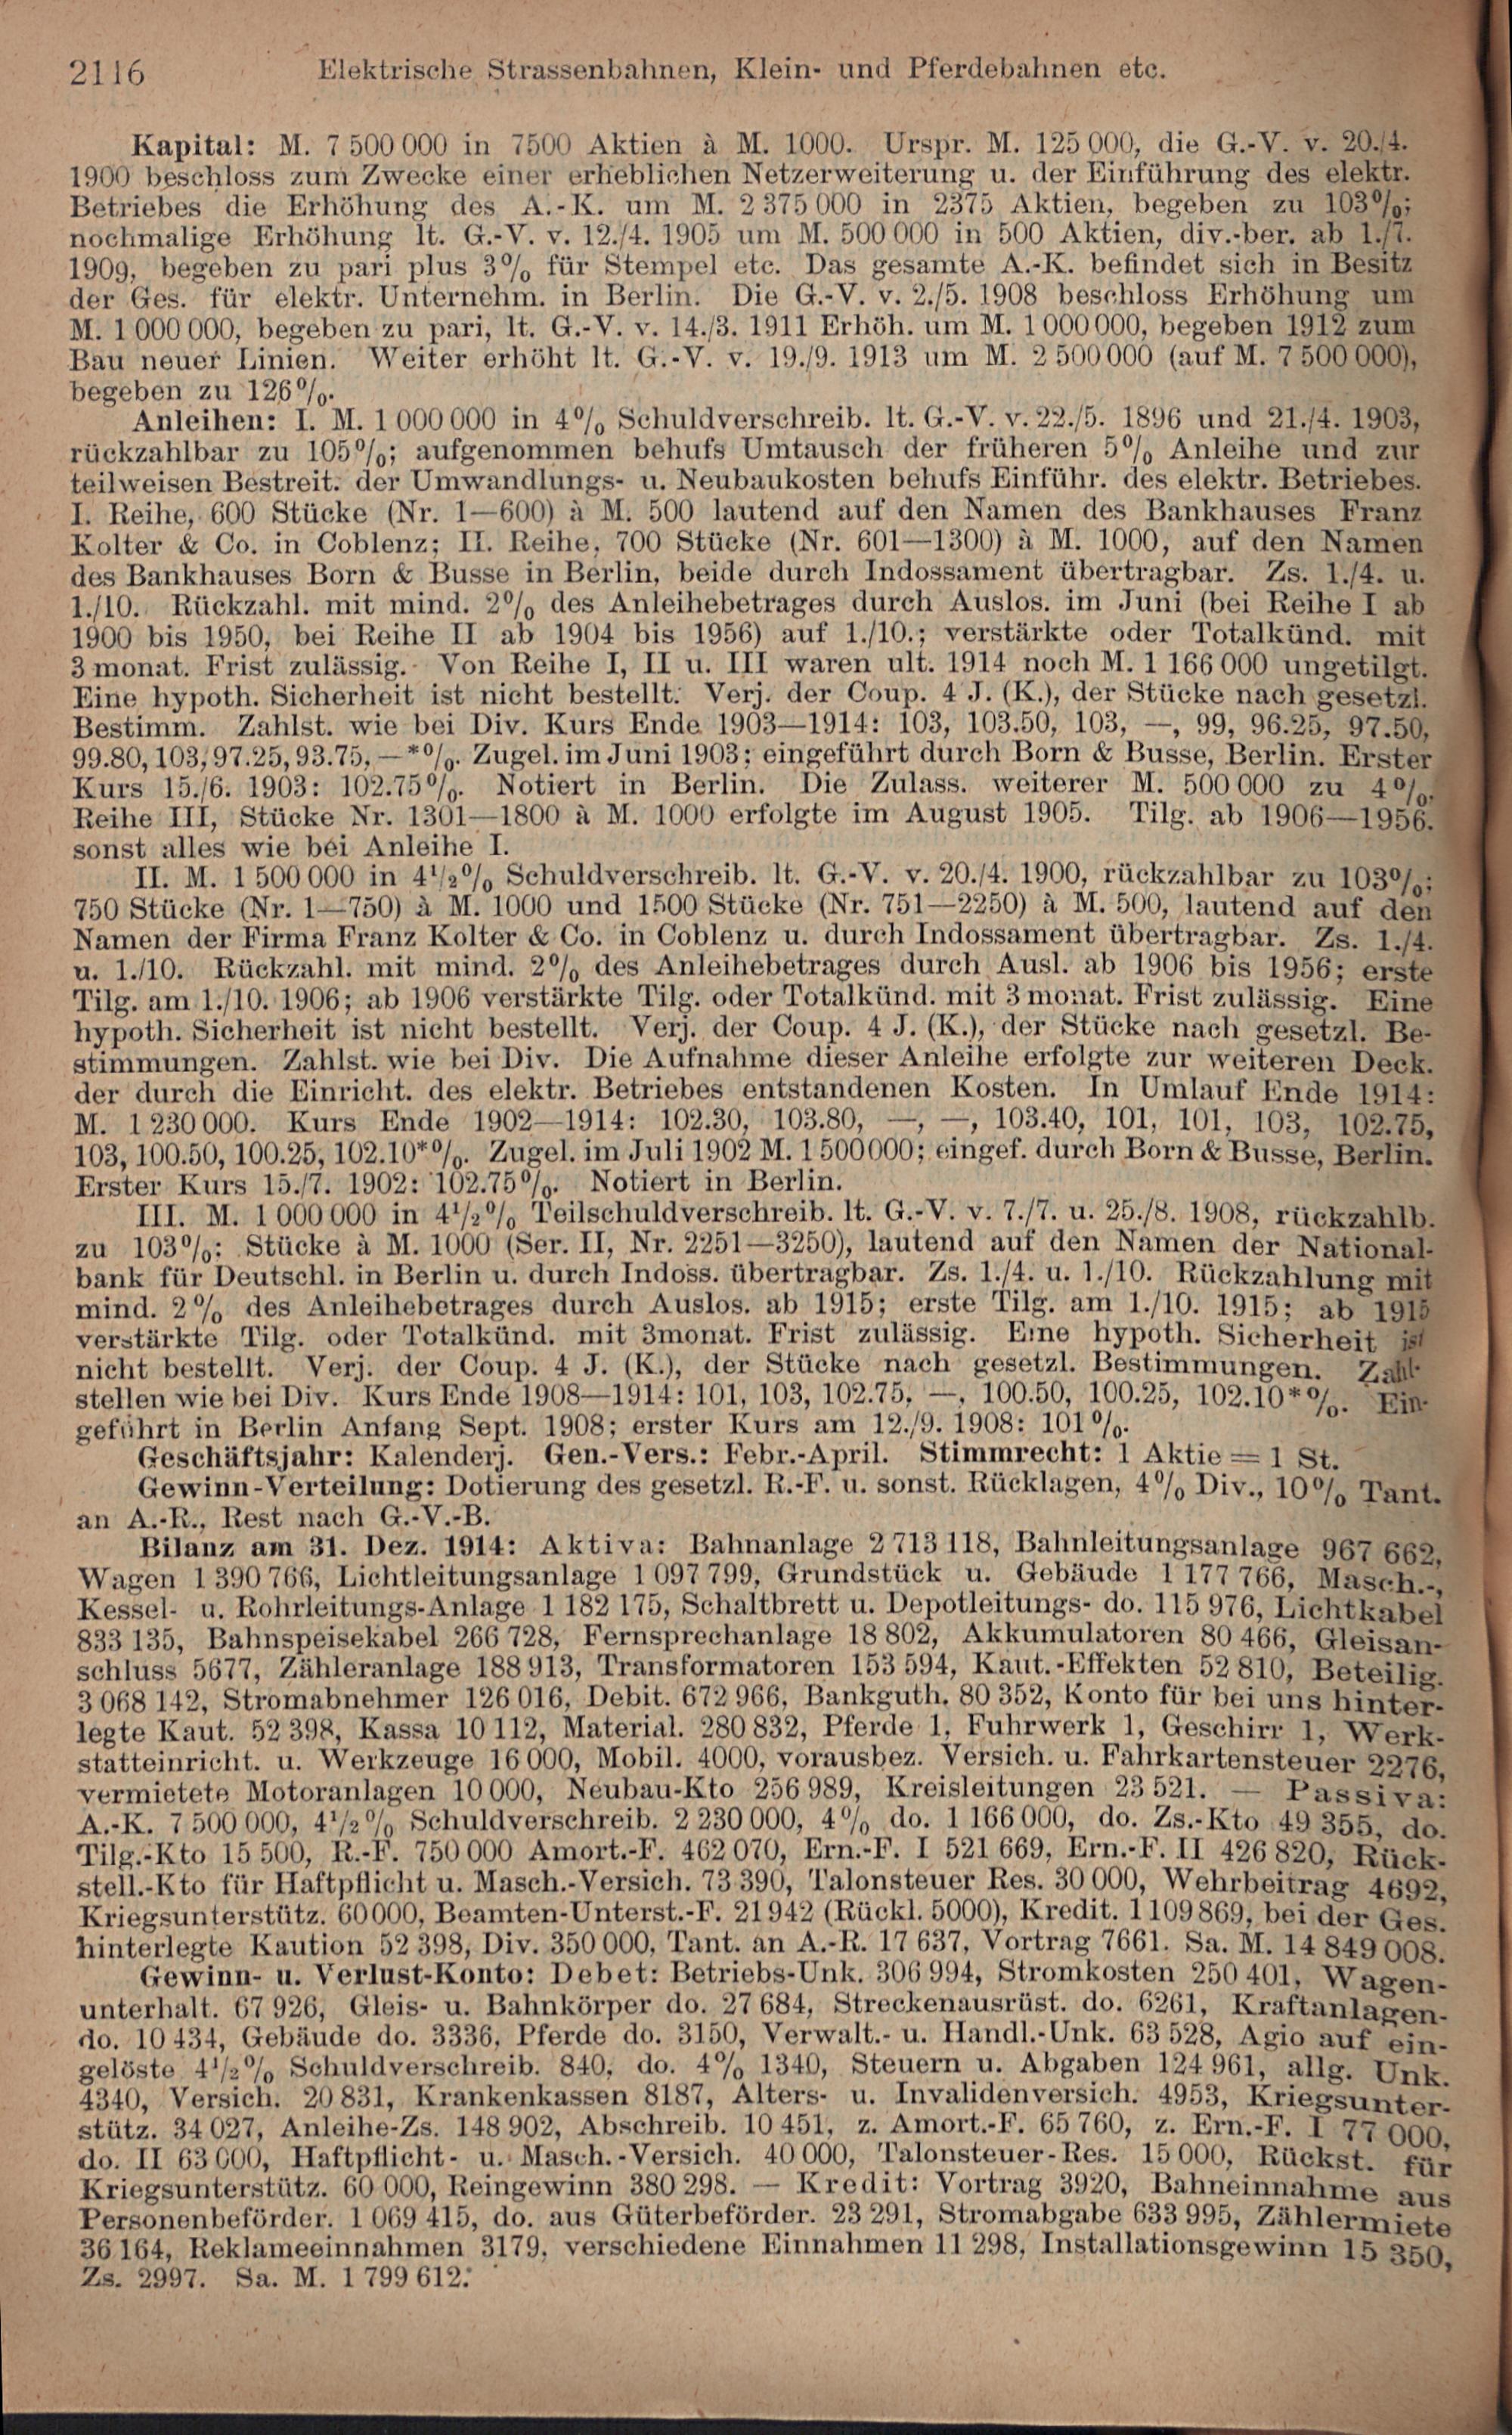 2116 Elektrische Strassenbahnen, Klein- und Pferdebahnen etc.
Kapital: M. 7 500 000 in 7500 Aktien à M. 1000. Urspr. M. 125 000, die G.-V. v. 20./4.
1900 beschloss zum Zwecke einer erheblichen Netzerweiterung u. der Einführung des elektr.
Betriebes die Erhöhung des A.-K. um M. 2 375 000 in 2375 Aktien, begeben zu 103%;
nochmalige Erhöhung lt. G.-V. v. 12./4. 1905 um M. 500 000 in 500 Aktien, div.-ber. ab 1./7.
1909, begeben zu pari plus 3% für Stempel etc. Das gesamte A.-K. befindet sich in Besitz
der Ges. für elektr. Unternehm. in Berlin. Die G.-V. v. 2./5. 1908 beschloss Erhöhung um
M. 1 000 000, begeben zu pari, lt. G.-V. v. 14./3. 1911 Erhöh. um M. 1 000 000, begeben 1912 zum
Bau neuer Linien. Weiter erhöht lt. G.-V. v. 19./9. 1913 um M. 2 500 000 (auf M. 7 500 000),
begeben zu 126%.
Anleihen: I. M. 1 000 000 in 4% Schuldverschreib. lt. G.-V. v. 22./5. 1896 und 21./4. 1903,
rückzahlbar zu 105%; aufgenommen behufs Umtausch der früheren 5% Anleihe und zur
teilweisen Bestreit. der Umwandlungs- u. Neubaukosten behufs Einführ. des elektr. Betriebes.
I. Reihe, 600 Stücke (Nr. 1—600) à M. 500 lautend auf den Namen des Bankhauses Franz
Kolter & Co. in Coblenz; II. Reihe, 700 Stücke (Nr. 601—1300) à M. 1000, auf den Namen
des Bankhauses Born & Busse in Berlin, beide durch Indossament übertragbar. Zs. 1./4. u.
1./10. Rückzahl. mit mind. 2% des Anleihebetrages durch Auslos. im Juni (bei Reihe I ab
1900 bis 1950, bei Reihe II ab 1904 bis 1956) auf 1./10.; verstärkte oder Totalkünd. mit
3 monat. Frist zulässig. Von Reihe I, II u. III waren ult. 1914 noch M. 1 166 000 ungetilgt.
Eine hypoth. Sicherheit ist nicht bestellt. Verj. der Coup. 4 J. (K.), der Stücke nach gesetzl.
Bestimm. Zahlst. wie bei Div. Kurs Ende 1903—1914: 103, 103.50, 103, —, 99, 96.25, 97.50,
99.80, 103, 97.25, 93.75, —*%. Zugel. im Juni 1903; eingeführt durch Born & Busse, Berlin. Erster
Kurs 15./6. 1903: 102.75%. Notiert in Berlin. Die Zulass. weiterer M. 500 000 zu 4%.
Reihe III, Stücke Nr. 1301—1800 à M. 1000 erfolgte im August 1905. Tilg. ab 1906—1956.
sonst alles wie bei Anleihe I.
II. M. 1 500 000 in 4½% Schuldverschreib. lt. G.-V. v. 20./4. 1900, rückzahlbar zu 103%;
750 Stücke (Nr. 1—750) à M. 1000 und 1500 Stücke (Nr. 751—2250) à M. 500, lautend auf den
Namen der Firma Franz Kolter & Co. in Coblenz u. durch Indossament übertragbar. Zs. 1./4.
u. 1./10. Rückzahl. mit mind. 2% des Anleihebetrages durch Ausl. ab 1906 bis 1956; erste
Tilg. am 1./10. 1906; ab 1906 verstärkte Tilg. oder Totalkünd. mit 3 monat. Frist zulässig. Eine
hypoth. Sicherheit ist nicht bestellt. Verj. der Coup. 4 J. (K.), der Stücke nach gesetzl. Be-
stimmungen. Zahlst. wie bei Div. Die Aufnahme dieser Anleihe erfolgte zur weiteren Deck.
der durch die Einricht. des elektr. Betriebes entstandenen Kosten. In Umlauf Ende 1914:
M. 1 230 000. Kurs Ende 1902—1914: 102.30, 103.80, —, —, 103.40, 101, 101, 103, 102.75,
103, 100.50, 100.25, 102.10*%. Zugel. im Juli 1902 M. 1 500 000; eingef. durch Born & Busse, Berlin.
Erster Kurs 15./7. 1902: 102.75%. Notiert in Berlin.
III. M. 1 000 000 in 4½% Teilschuldverschreib. lt. G.-V. v. 7./7. u. 25./8. 1908, rückzahlb.
zu 103%: Stücke à M. 1000 (Ser. II, Nr. 2251—3250), lautend auf den Namen der National-
bank für Deutschl. in Berlin u. durch Indoss. übertragbar. Zs. 1./4. u. 1./10. Rückzahlung mit
mind. 2% des Anleihebetrages durch Auslos. ab 1915; erste Tilg. am 1./10. 1915; ab 1915
verstärkte Tilg. oder Totalkünd. mit 3monat. Frist zulässig. Eine hypoth. Sicherheit ist
nicht bestellt. Verj. der Coup. 4 J. (K.), der Stücke nach gesetzl. Bestimmungen. Zahl-
stellen wie bei Div. Kurs Ende 1908—1914: 101, 103, 102.75, —, 100.50, 100.25, 102.10*%. Ein-
geführt in Berlin Anfang Sept. 1908; erster Kurs am 12./9. 1908: 101%.
Geschäftsjahr: Kalenderj. Gen.-Vers.: Febr.-April. Stimmrecht: 1 Aktie = 1 St.
Gewinn-Verteilung: Dotierung des gesetzl. R.-F. u. sonst. Rücklagen, 4% Div., 10% Tant.
an A.-R., Rest nach G.-V.-B.
Bilanz am 31. Dez. 1914: Aktiva: Bahnanlage 2 713 118, Bahnleitungsanlage 967 662,
Wagen 1 390 766, Lichtleitungsanlage 1 097 799, Grundstück u. Gebäude 1 177 766, Masch.-,
Kessel- u. Rohrleitungs-Anlage 1 182 175, Schaltbrett u. Depotleitungs- do. 115 976, Lichtkabel
833 135, Bahnspeisekabel 266 728, Fernsprechanlage 18 802, Akkumulatoren 80 466, Gleisan-
schluss 5677, Zähleranlage 188 913, Transformatoren 153 594, Kaut.-Effekten 52 810, Beteilig.
3 068 142, Stromabnehmer 126 016, Debit. 672 966, Bankguth. 80 352, Konto für bei uns hinter-
legte Kaut. 52 398, Kassa 10 112, Material. 280 832, Pferde 1, Fuhrwerk 1, Geschirr 1, Werk-
statteinricht. u. Werkzeuge 16 000, Mobil. 4000, vorausbez. Versich. u. Fahrkartensteuer 2276,
vermietete Motoranlagen 10 000, Neubau-Kto 256 989, Kreisleitungen 23 521. — Passiva:
A.-K. 7 500 000, 4½% Schuldverschreib. 2 230 000, 4% do. 1 166 000, do. Zs.-Kto 49 355, do.
Tilg.-Kto 15 500, R.-F. 750 000 Amort.-F. 462 070, Ern.-F. I 521 669, Ern.-F. II 426 820, Rück-
stell.-Kto für Haftpflicht u. Masch.-Versich. 73 390, Talonsteuer Res. 30 000, Wehrbeitrag 4692,
Kriegsunterstütz. 60 000, Beamten-Unterst.-F. 21 942 (Rückl. 5000), Kredit. 1 109 869, bei der Ges.
hinterlegte Kaution 52 398, Div. 350 000, Tant. an A.-R. 17 637, Vortrag 7661. Sa. M. 14 849 008.
Gewinn- u. Verlust-Konto: Debet: Betriebs-Unk. 306 994, Stromkosten 250 401, Wagen-
unterhalt. 67 926, Gleis- u. Bahnkörper do. 27 684, Streckenausrüst. do. 6261, Kraftanlagen-
do. 10 434, Gebäude do. 3336, Pferde do. 3150, Verwalt.- u. Handl.-Unk. 63 528, Agio auf ein-
gelöste 4½% Schuldverschreib. 840, do. 4% 1340, Steuern u. Abgaben 124 961, allg. Unk.
4340, Versich. 20 831, Krankenkassen 8187, Alters- u. Invalidenversich. 4953, Kriegsunter-
stütz. 34 027, Anleihe-Zs. 148 902, Abschreib. 10 451, z. Amort.-F. 65 760, z. Ern.-F. I 77 000,
do. II 63 000, Haftpflicht- u. Masch.-Versich. 40 000, Talonsteuer-Res. 15 000, Rückst. für
Kriegsunterstütz. 60 000, Reingewinn 380 298. — Kredit: Vortrag 3920, Bahneinnahme aus
Personenbeförder. 1 069 415, do. aus Güterbeförder. 23 291, Stromabgabe 633 995, Zählermiete
36 164, Reklameeinnahmen 3179, verschiedene Einnahmen 11 298, Installationsgewinn 15 350,
Zs. 2997. Sa. M. 1 799 612.